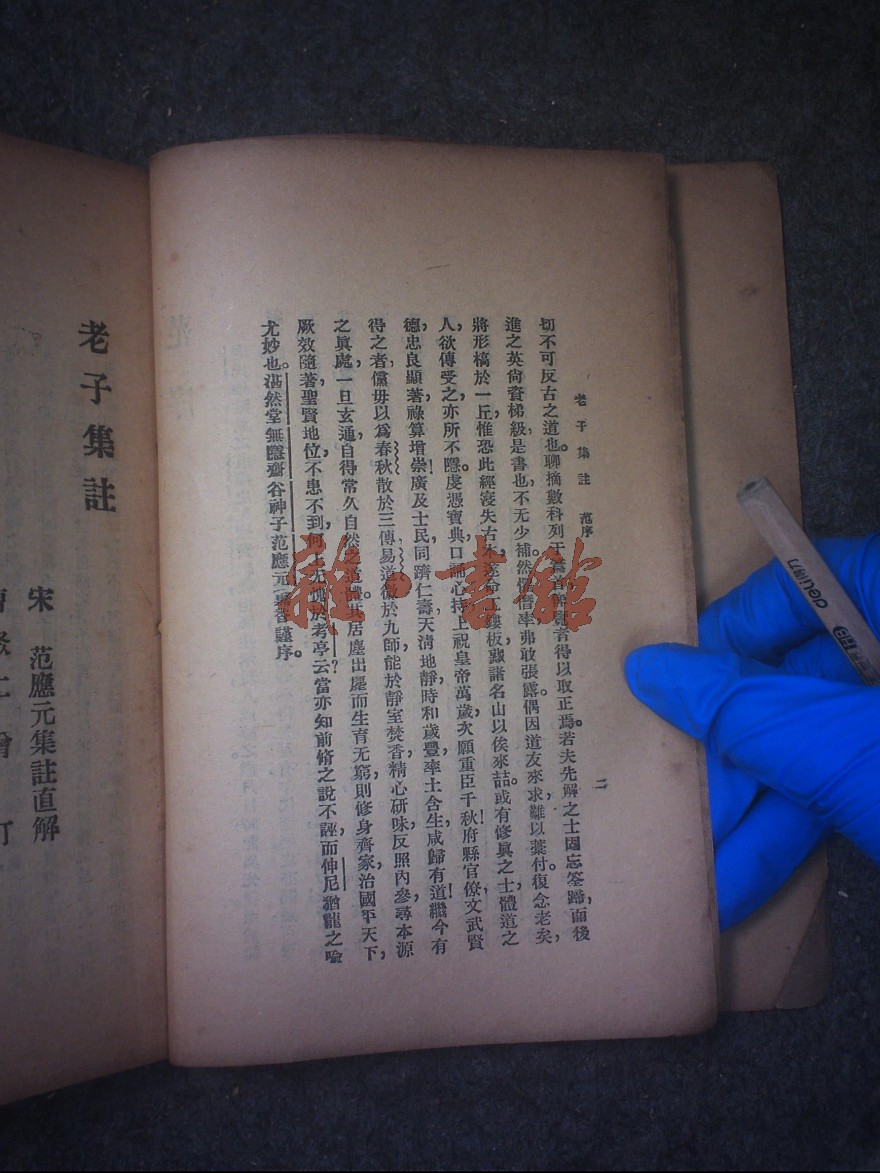 老子集註　范序
二
切不可反古之道也。聊摘數科列于
得以取正焉。若夫先解之士固忘筌蹄，而後
進之英尙資梯級，是書也不无少補。然
率弗敢張露。偶因道友來求，難以藁付。復念老矣，
將形槁於一丘，惟恐此經寖失古
鏤板
諸名山以俟來喆。或有修眞之士體道之
人，欲傳受之，亦所不隱。虔憑寶典，口誦心持，上祝皇帝萬歲，次願重臣千秋！府縣官僚，文武賢
德，忠良顯著，祿算增崇！廣及士民，同躋仁壽，天淸地靜，時和歲豐，率土含生，咸歸有道！繼今有
得之者，儻毋以爲春秋散於三傳，易道微於九師，能於靜室焚香，精心研味，反照內參，尋本源
之眞處，一旦玄通，自得常久自然之道體。其居塵出塵而生育无窮，則修身齊家治國平天下，
厥效隨著，聖賢地位，不患不到，何上
於考亭云？當亦知前脩之說不誣，而仲尼猶龍之喩
尤妙也。湛然堂無隱齋谷神子范應元
謹序。
老子集註
宋　范應元集註直解